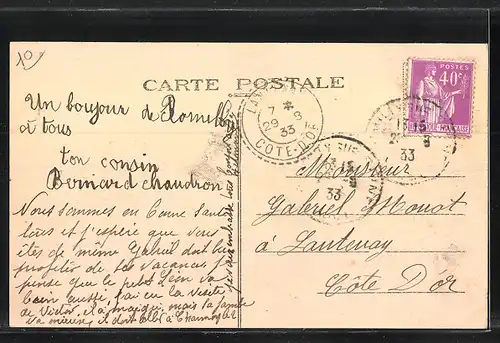 10
CARTE POSTALE
POSTES
40c
Un bonjour de
à tous
ton cousin
Bernard Chaudron
Nous sommes en bonne santé
tous et j'espère que vous
êtes de même Gabriel doit bien
profiter de tes vacances je
pense que le petit
bain aussi, j'ai eu la visite
de Victor, il a maigri, mais sa jambe
va mieux, il doit aller à
7 *
29 - 8
33
COTE-D'OR
33
33
Monsieur
Gabriel Monot
à Lantenay
Côte D'or